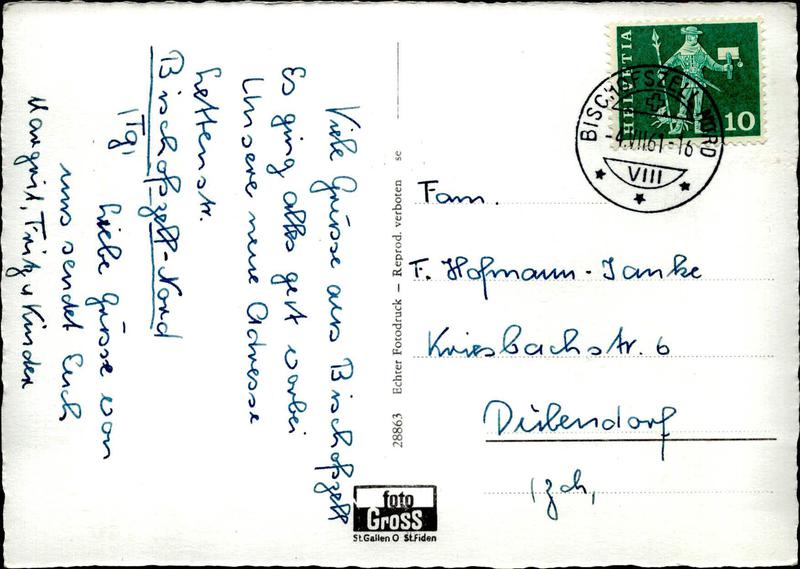 Viele Grüsse aus Bischofszell
Es ging alles gut vorbei
Unsere neue Adresse
Lettenstr.
Bischofszell-Nord
(Tg,
Liebe Grüsse von
uns sendet Euch
Margrit, Fritz u Kinder
28863 Echter Fotodruck – Reprod. verboten se
foto
Gross
St.Gallen O St.Fiden
HELVETIA
10
BISCHOFSZELL NORD
-4.VII.61-16
VIII
Fam.
T. Hofmann-Janke
Kriesbachstr. 6
Dübendorf
(Zch,